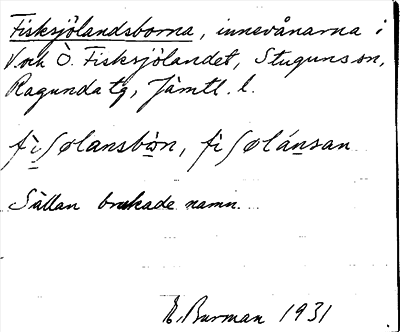 Fisksjölandsborna, innevånarna i
V. och Ö. Fisksjölandet, Stuguns sn,
Ragunda tg, Jämtl. l.
fìʃølansbòn, fiʃølánsan
Sällan brukade namn.
E. Burman 1931